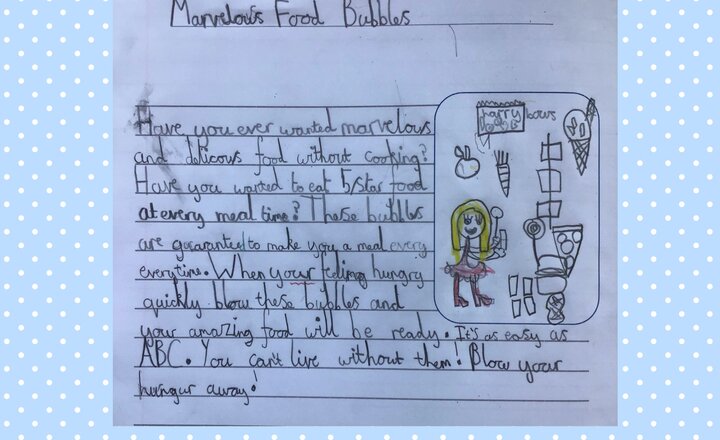 Marvelous Food Bubbles
Have you ever wanted marvelous
and delicous food without cooking?
Have you wanted to eat 5 star food
at every meal time? These bubbles
are guaranted to make you a meal every
everytime. When your feeling hungry
quickly blow these bubbles and
your amazing food will be ready. It's as easy as
ABC. You can't live without them! Blow your
hungur away!
harry
bows